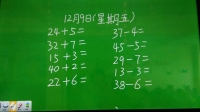 12月9日(星期五)
24+5= 37-4=
32+7= 45-5=
15+3= 29-7=
40+2= 13-3=
22+6= 38-6=